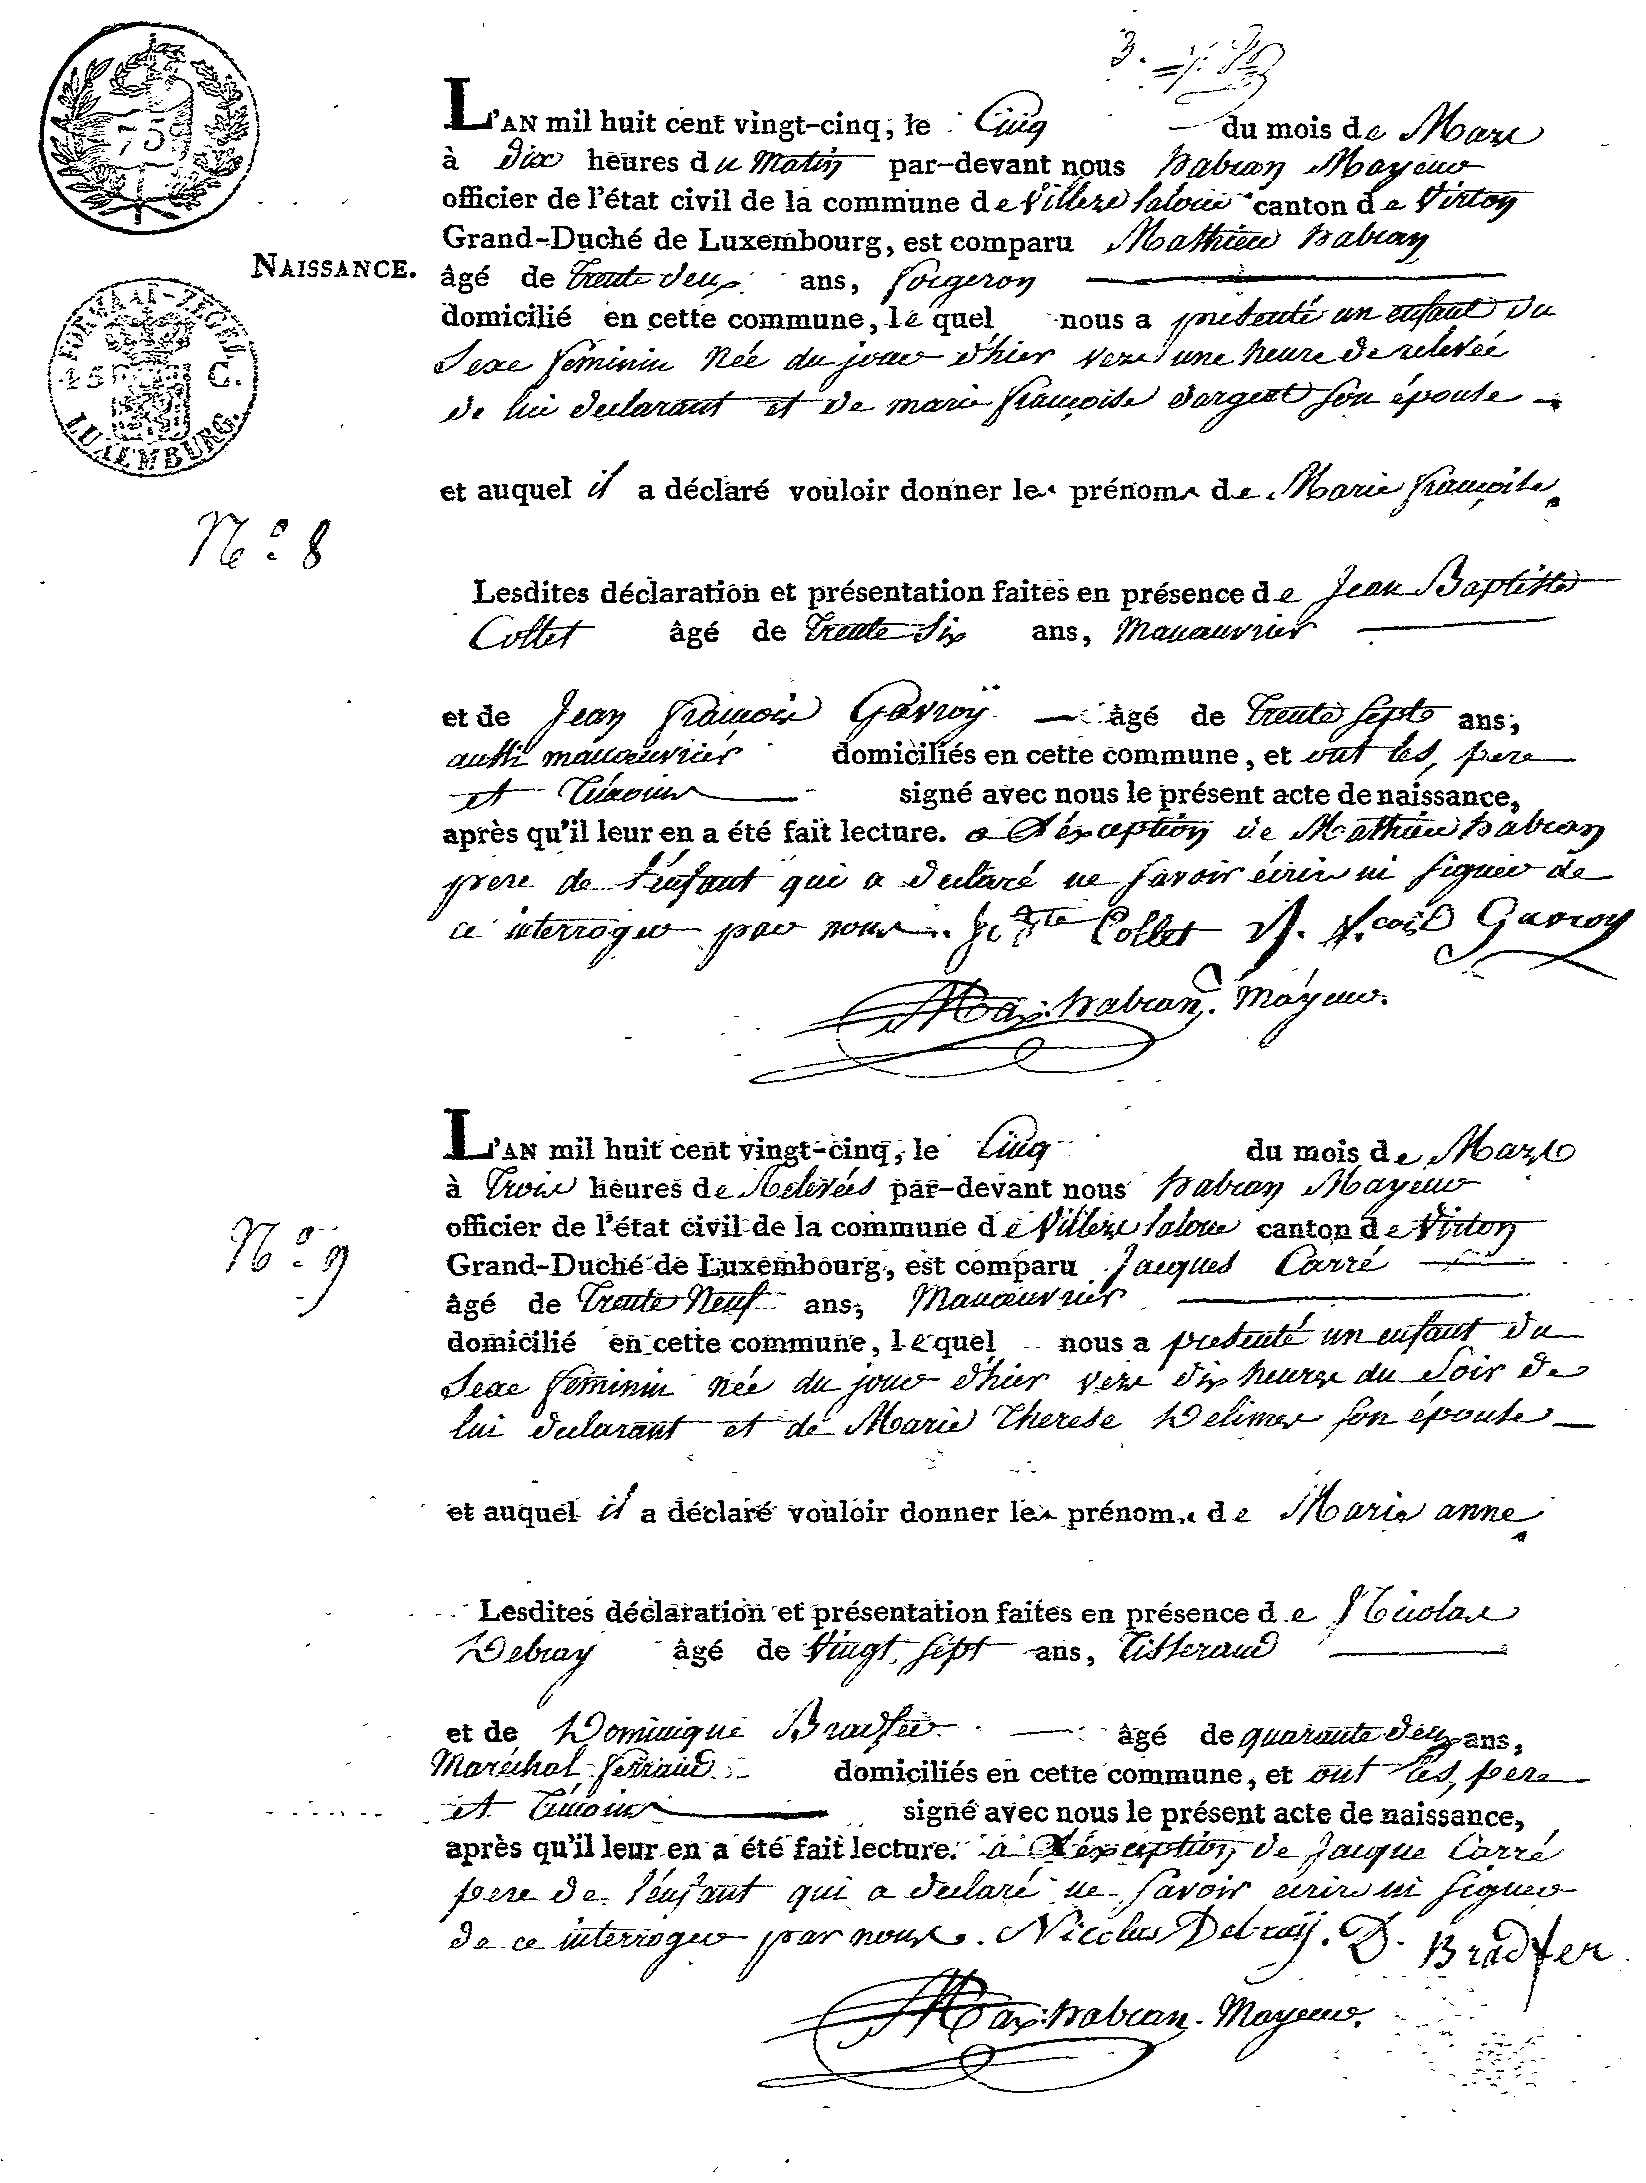 75
NAISSANCE.
FORMAAT-ZEGEL
45 C.
LUXEMBURG.
3.
L'AN mil huit cent vingt-cinq, le Cinq du mois de Mars
à Dix heures du Matin par-devant nous habran Mayeur
officier de l'état civil de la commune de Villers laloue canton de Virton
Grand-Duché de Luxembourg, est comparu Mathieu habran
âgé de trente deux ans, forgeron
domicilié en cette commune, lequel nous a présenté un enfant du
Sexe féminin Née du jour d'hier vers une heure de relevée
de lui déclarant et de marie françoise dargent son épouse
et auquel il a déclaré vouloir donner les prénoms de Marie françoise.
N.º 8
Lesdites déclaration et présentation faites en présence de Jean Baptiste
Collet âgé de trente Six ans, Manœuvrier
et de Jean françois Gavroÿ âgé de trente Sept ans,
aussi manœuvrier domiciliés en cette commune, et ont les, pere
et Témoins signé avec nous le présent acte de naissance,
après qu'il leur en a été fait lecture. a L'éxception de Mathieu habran
pere de l'enfant qui a déclaré ne savoir écrire ni signer de
ce interroger par nous. Collet J. f.cois Gavroy
Max: habran. Mayeur.
L'AN mil huit cent vingt-cinq, le Cinq du mois de Mars
à Trois heures de Relevées par-devant nous habran Mayeur
officier de l'état civil de la commune de Villers laloue canton de Virton
N.º 9
Grand-Duché de Luxembourg, est comparu Jacques Carré
âgé de Trente Neuf ans, Manœuvrier
domicilié en cette commune, lequel nous a présenté un enfant du
Sexe féminin née du jour d'hier vers dix heures du Soir de
lui déclarant et de Marie Therese Delimes son épouse
et auquel il a déclaré vouloir donner les prénoms de Marie anne.
Lesdites déclaration et présentation faites en présence de Nicolas
Debray âgé de Vingt Sept ans, Tisserand
et de Dominique Bradfer âgé de quarante deux ans,
Maréchal ferrand domiciliés en cette commune, et ont les, pere
et Témoins signé avec nous le présent acte de naissance,
après qu'il leur en a été fait lecture. à L'éxception de Jacque Carré
pere de l'enfant qui a déclaré ne savoir écrire ni signer
de ce interroger par nous. Nicolas Debraÿ. D. Bradfer
Max: habran. Mayeur.